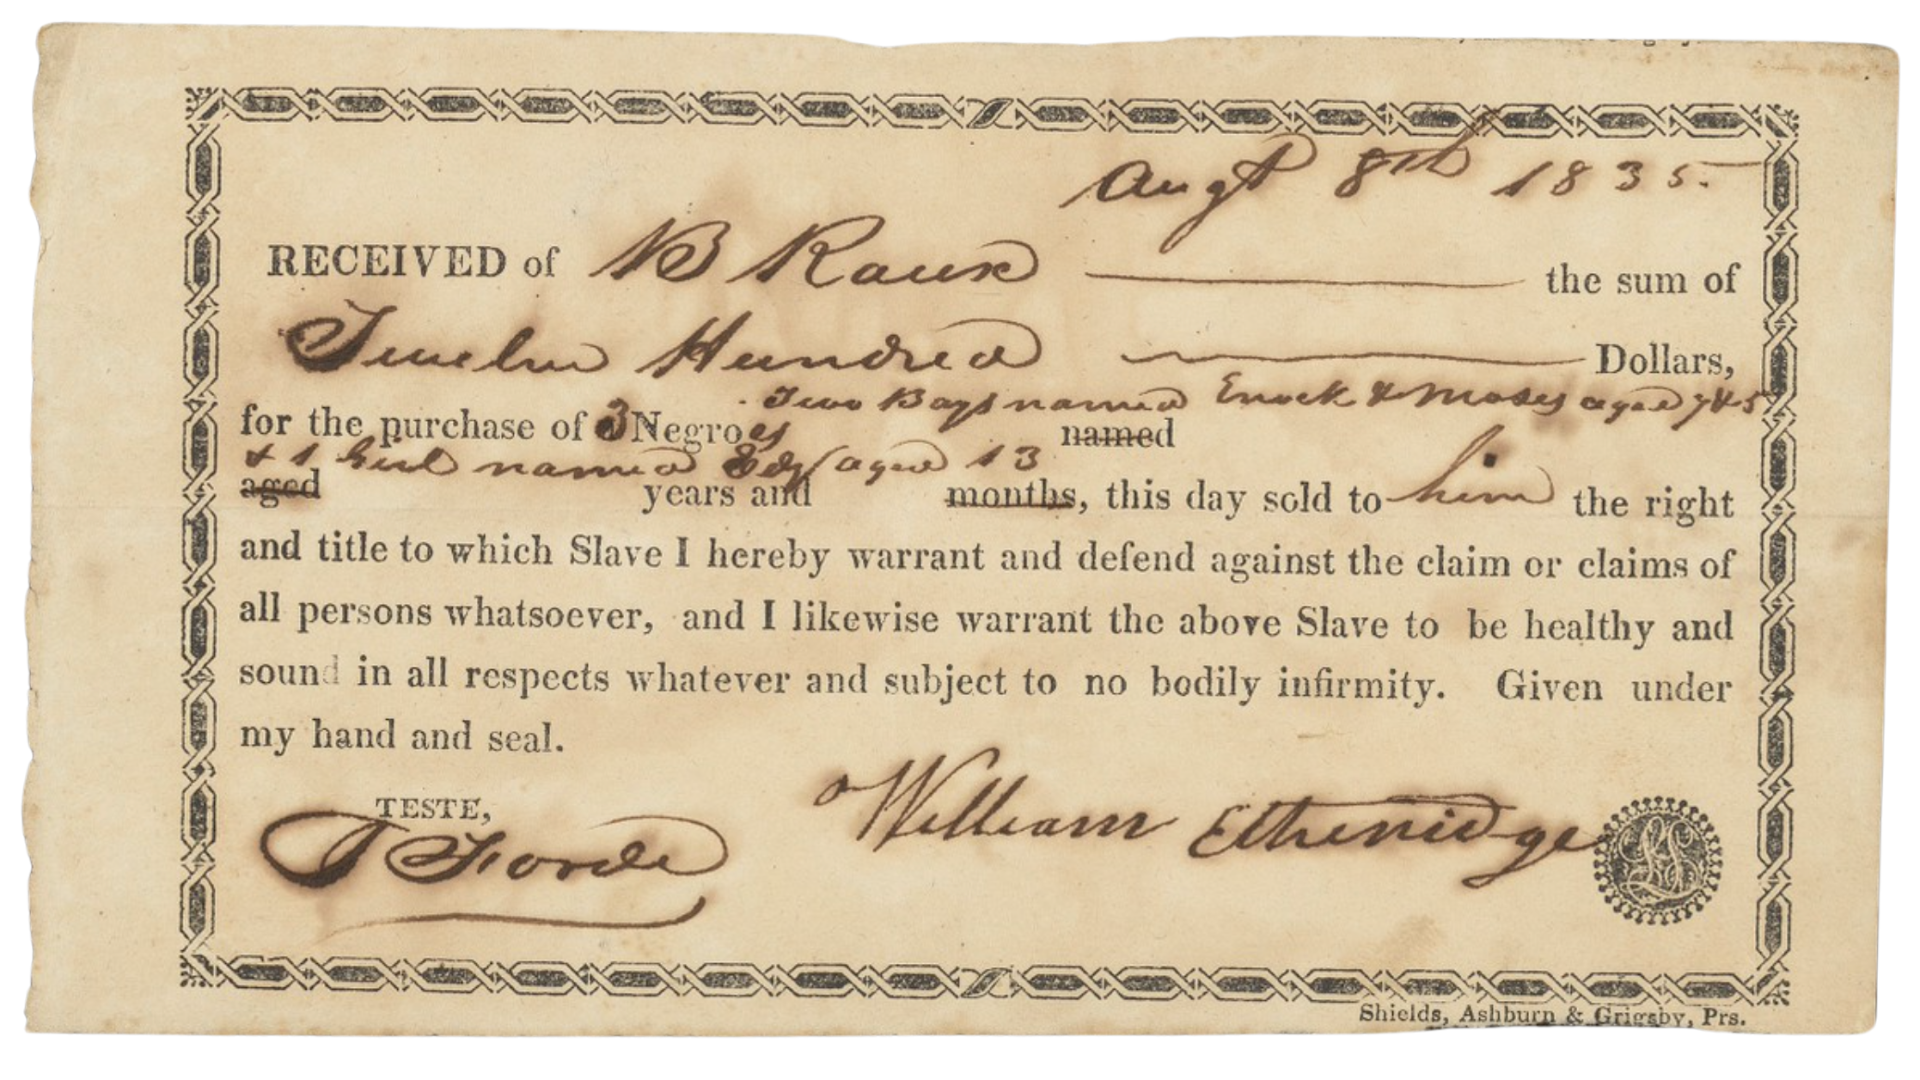 Augt 8th 1835.
RECEIVED of B Raux the sum of
Twelve Hundred Dollars,
Two Boys named Enock & Moses aged 7 & 5
for the purchase of 3 Negroes named
& 1 Girl named Edy aged 13
aged years and months, this day sold to him the right
and title to which Slave I hereby warrant and defend against the claim or claims of
all persons whatsoever, and I likewise warrant the above Slave to be healthy and
sound in all respects whatever and subject to no bodily infirmity. Given under
my hand and seal.
TESTE,
William Etheridge
T Forde
LS
Shields, Ashburn & Grigsby, Prs.